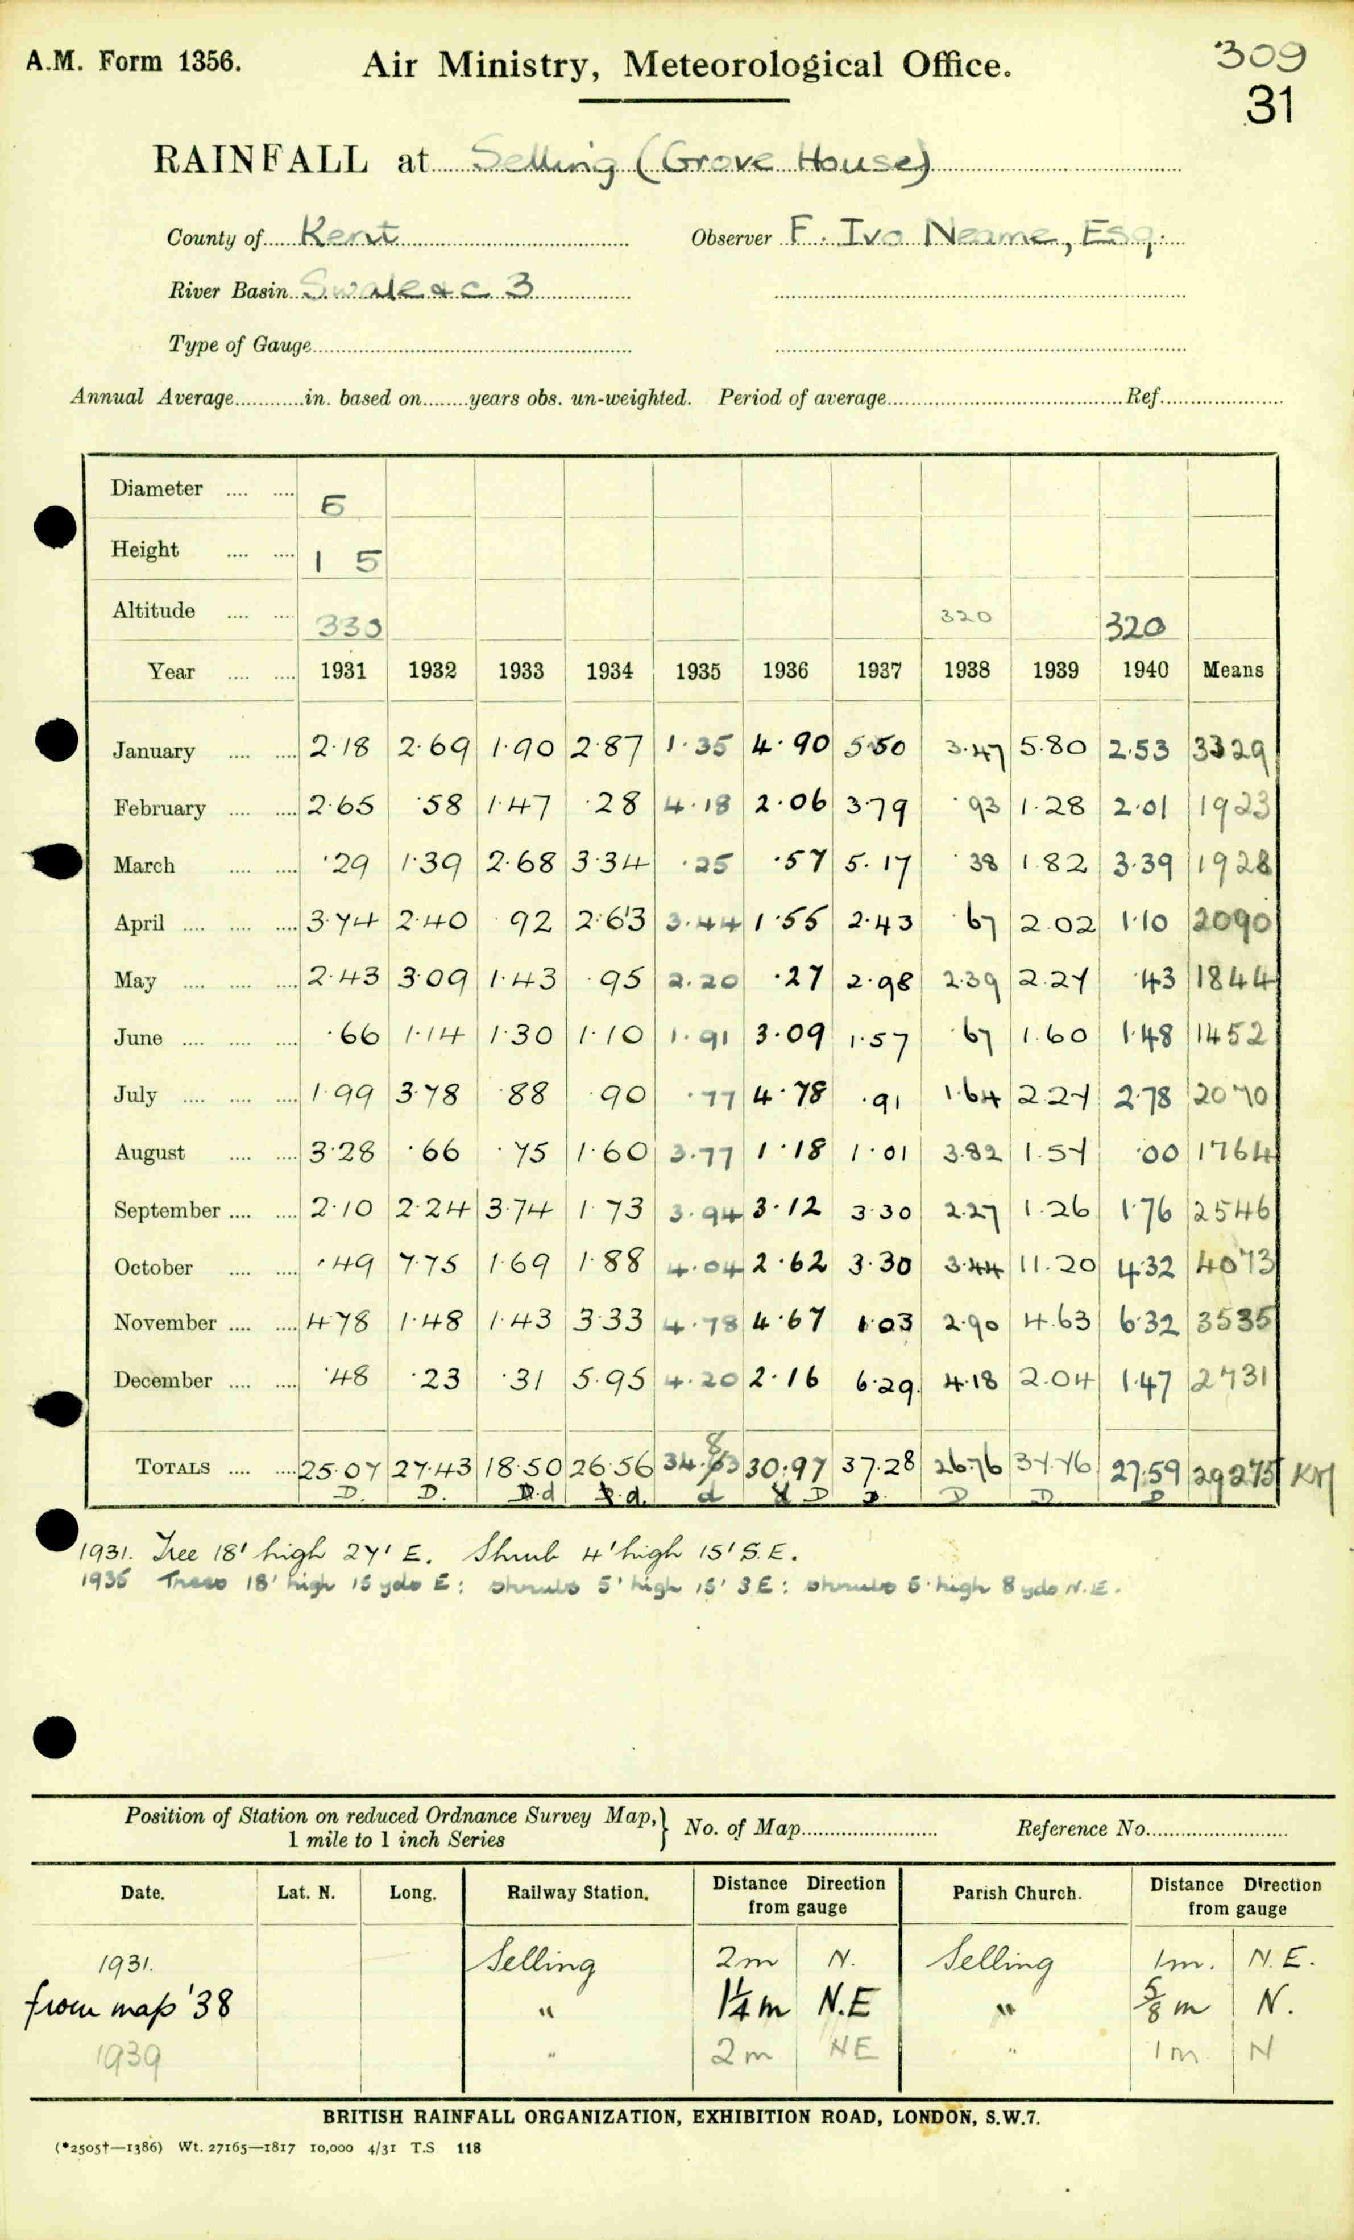 A.M. Form 1356. Air Ministry, Meteorological Office. 309
31
RAINFALL at Selling (Grove House)
County of Kent Observer F. Ivo Neame, Esq.
River Basin Swale &c 3
Type of Gauge
Annual Average in. based on years obs. un-weighted. Period of average Ref.
Diameter 5
Height 1 5
Altitude 330 320 320
Year 1931 1932 1933 1934 1935 1936 1937 1938 1939 1940 Means
January 2·18 2·69 1·90 2·87 1·35 4·90 5·50 3·47 5·80 2·53 3329
February 2·65 ·58 1·47 ·28 4·18 2·06 3·79 ·93 1·28 2·01 1923
March ·29 1·39 2·68 3·34 ·25 ·57 5·17 ·38 1·82 3·39 1928
April 3·74 2·40 ·92 2·63 3·44 1·55 2·43 ·67 2·02 1·10 2090
May 2·43 3·09 1·43 ·95 2·20 ·27 2·98 2·39 2·27 ·43 1844
June ·66 1·14 1·30 1·10 1·91 3·09 1·57 ·67 1·60 1·48 1452
July 1·99 3·78 ·88 ·90 ·77 4·78 ·91 1·64 2·27 2·78 2070
August 3·28 ·66 ·75 1·60 3·77 1·18 1·01 3·82 1·57 ·00 1764
September 2·10 2·24 3·74 1·73 3·94 3·12 3·30 2·27 1·26 1·76 2546
October ·49 7·75 1·69 1·88 4·04 2·62 3·30 3·44 11·20 4·32 4073
November 4·78 1·48 1·43 3·33 4·78 4·67 1·03 2·90 4·63 6·32 3535
December ·48 ·23 ·31 5·95 4·20 2·16 6·29 4·18 2·04 1·47 2731
TOTALS 25·07 27·43 18·50 26·56 34·83 30·97 37·28 26·76 37·76 27·59 29275 KM
D. D. d d. d D D D D D
1931. Tree 18' high 27' E. Shrub 4' high 15' S.E.
1935 Trees 18' high 15 yds E: shrubs 5' high 15' SE: shrubs 5' high 8 yds N.E.
Position of Station on reduced Ordnance Survey Map, 1 mile to 1 inch Series } No. of Map Reference No.
Date. Lat. N. Long. Railway Station. Distance Direction from gauge Parish Church. Distance Direction from gauge
1931. Selling 2m N. Selling 1m. N.E.
from map '38 " 1¼ m N.E " ⅝ m N.
1939 " 2m NE " 1m N
BRITISH RAINFALL ORGANIZATION, EXHIBITION ROAD, LONDON, S.W.7.
(*2505†—1386) Wt. 27165—1817 10,000 4/31 T.S 118